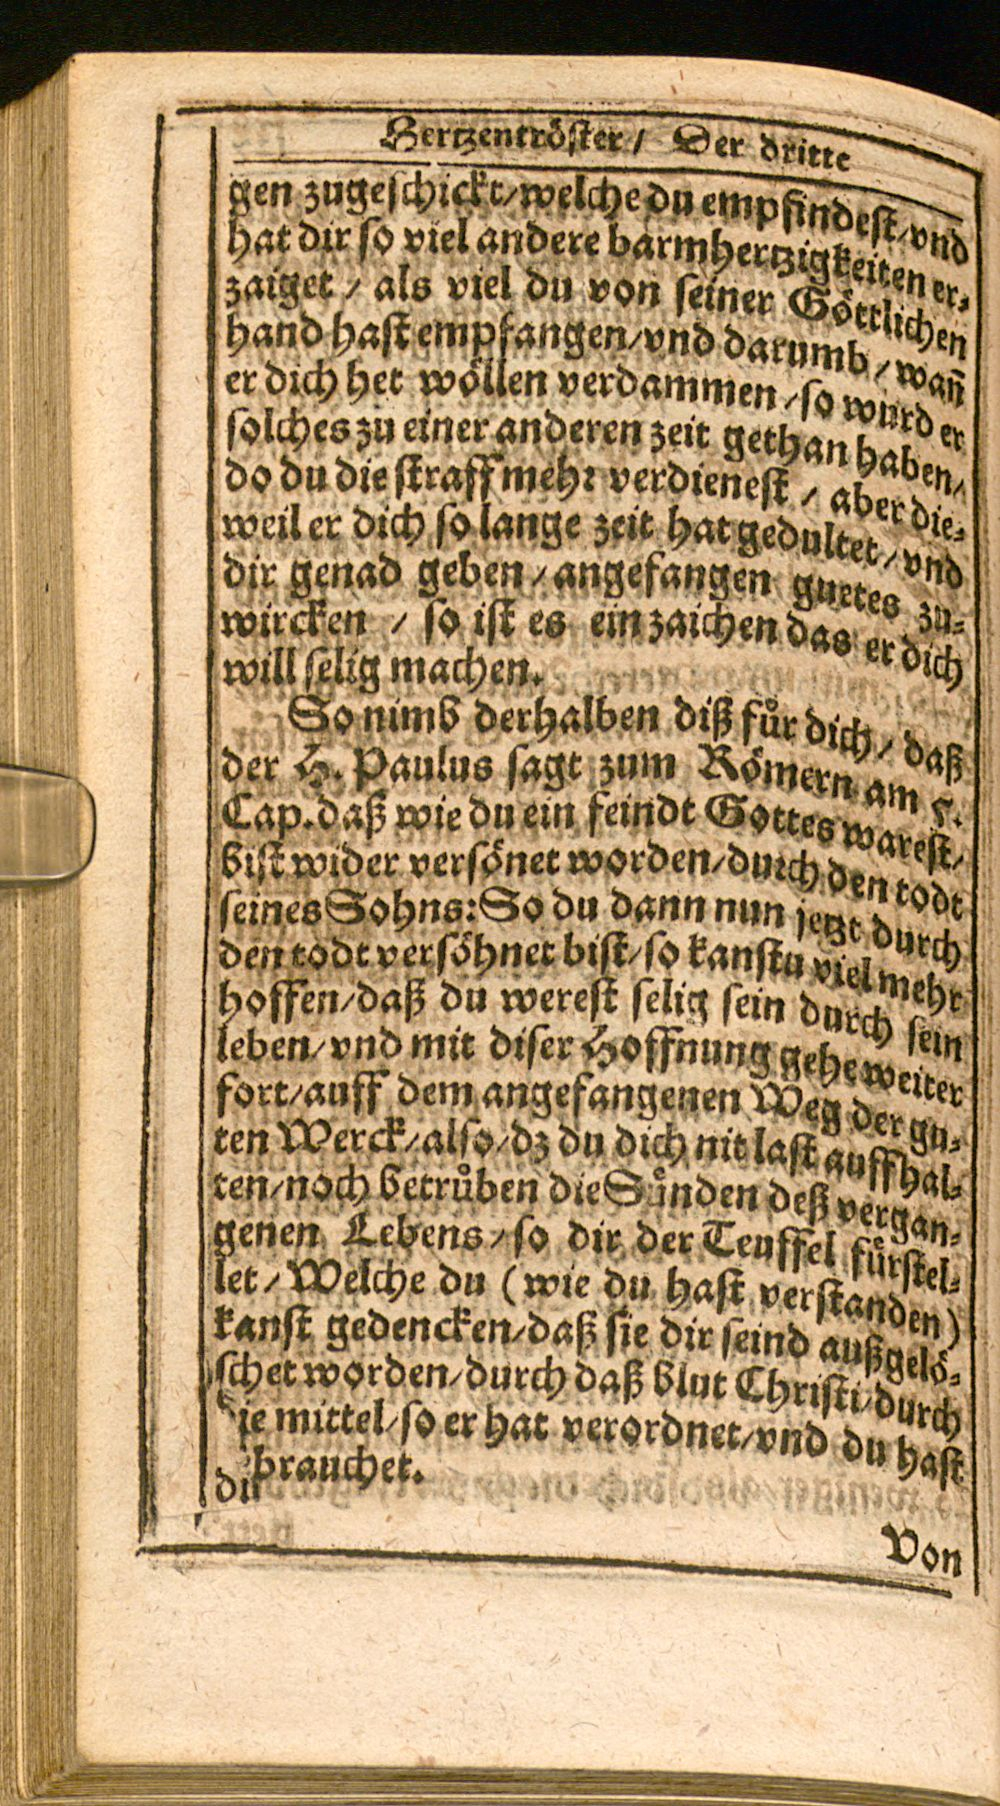 Hertzentröster / Der dritte
gen zugeschickt / welche du empfindest / vnd
hat dir so viel andere barmhertzigkeiten er-
zaiget / als viel du von seiner Göttlichen
hand hast empfangen / vnd darumb / wañ
er dich het wöllen verdammen / so wurd er
solches zu einer anderen zeit gethan haben /
do du die straff mehr verdienest / aber die-
weil er dich so lange zeit hat gedultet / vnd
dir genad geben / angefangen guetes zu-
wircken / so ist es ein zaichen das er dich
will selig machen.
So nimb derhalben diß fůr dich / daß
der H. Paulus sagt zum Römern am 5.
Cap. daß wie du ein feindt Gottes warest /
bist wider versönet worden / durch den todt
seines Sohns: So du dann nun jetzt durch
den todt versöhnet bist / so kanstu viel mehr
hoffen / daß du werest selig sein durch sein
leben / vnd mit diser Hoffnung gehe weiter
fort / auff dem angefangenen Weg der gu-
ten Werck / also / dz du dich nit last auffhal-
ten / noch betrůben die Sůnden deß vergan-
genen Lebens / so dir der Teuffel fůrstel-
let / Welche du (wie du hast verstanden)
kanst gedencken / daß sie dir seind außgelö-
schet worden / durch daß blut Christi / durch
die mittel / so er hat verordnet / vnd du hast
brauchet.
Von